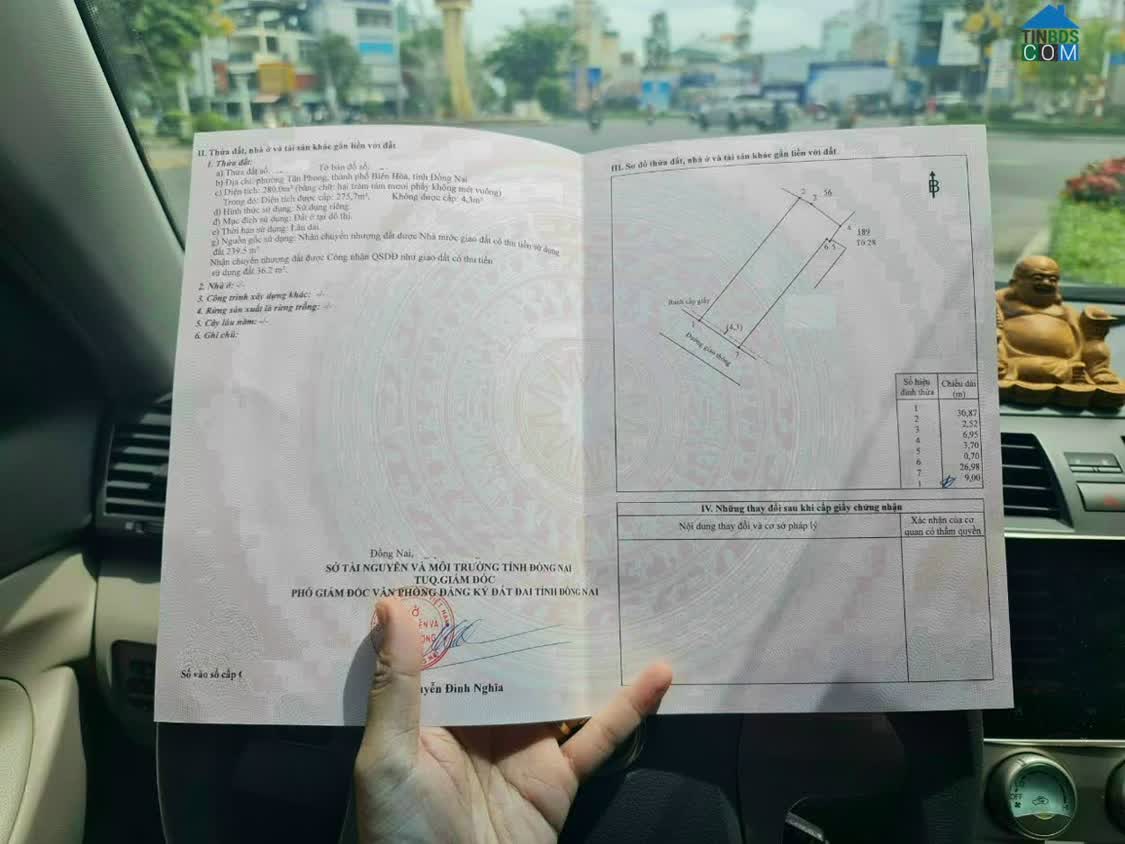 TINBDS
COM
II. Thửa đất, nhà ở và tài sản khác gắn liền với đất
1. Thửa đất:
a) Thửa đất số: Tờ bản đồ số:
b) Địa chỉ: phường Tân Phong, thành phố Biên Hòa, tỉnh Đồng Nai
c) Diện tích: 280.0m² (bằng chữ: hai trăm tám mươi phẩy không mét vuông)
Trong đó: Diện tích được cấp: 275,7m² Không được cấp: 4,3m²
d) Hình thức sử dụng: Sử dụng riêng
đ) Mục đích sử dụng: Đất ở tại đô thị
e) Thời hạn sử dụng: Lâu dài
g) Nguồn gốc sử dụng: Nhận chuyển nhượng đất được Nhà nước giao đất có thu tiền sử dụng
đất 239.5 m²
Nhận chuyển nhượng đất được Công nhận QSDĐ như giao đất có thu tiền
sử dụng đất 36.2 m².
2. Nhà ở: -/-
3. Công trình xây dựng khác: -/-
4. Rừng sản xuất là rừng trồng: -/-
5. Cây lâu năm: -/-
6. Ghi chú:
Đồng Nai,
SỞ TÀI NGUYÊN VÀ MÔI TRƯỜNG TỈNH ĐỒNG NAI
TUQ.GIÁM ĐỐC
PHÓ GIÁM ĐỐC VĂN PHÒNG ĐĂNG KÝ ĐẤT ĐAI TỈNH ĐỒNG NAI
Đình Nghĩa
Số vào sổ cấp
III. Sơ đồ thửa đất, nhà ở và tài sản khác gắn liền với đất
B
2 3 56
4
189
6 5 Tờ 28
Ranh cấp giấy
1 (4,3)
7
Đường giao thông
Số hiệu đỉnh thửa Chiều dài (m)
1
30,87
2
2,52
3
6,95
4
3,70
5
0,70
6
26,98
7
9,00
1
IV. Những thay đổi sau khi cấp giấy chứng nhận
Nội dung thay đổi và cơ sở pháp lý
Xác nhận của cơ
quan có thẩm quyền
OFF